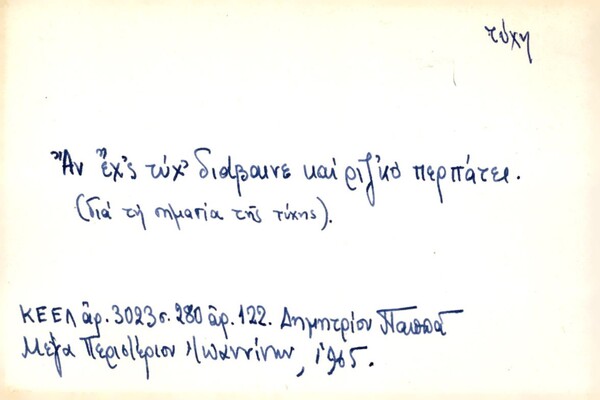 τύχη
Ἂν ἔχ'ς τύχ' διάβαινε καὶ ριζ'κὸ περπάτει.
(διά τή σημασία τῆς τύχης).
ΚΕΕΛ ἀρ. 3023 σ. 280 ἀρ. 122. Δημητρίου Παππᾶ
Μεγα Περιστέριον Ἰωαννίνων, 1965.